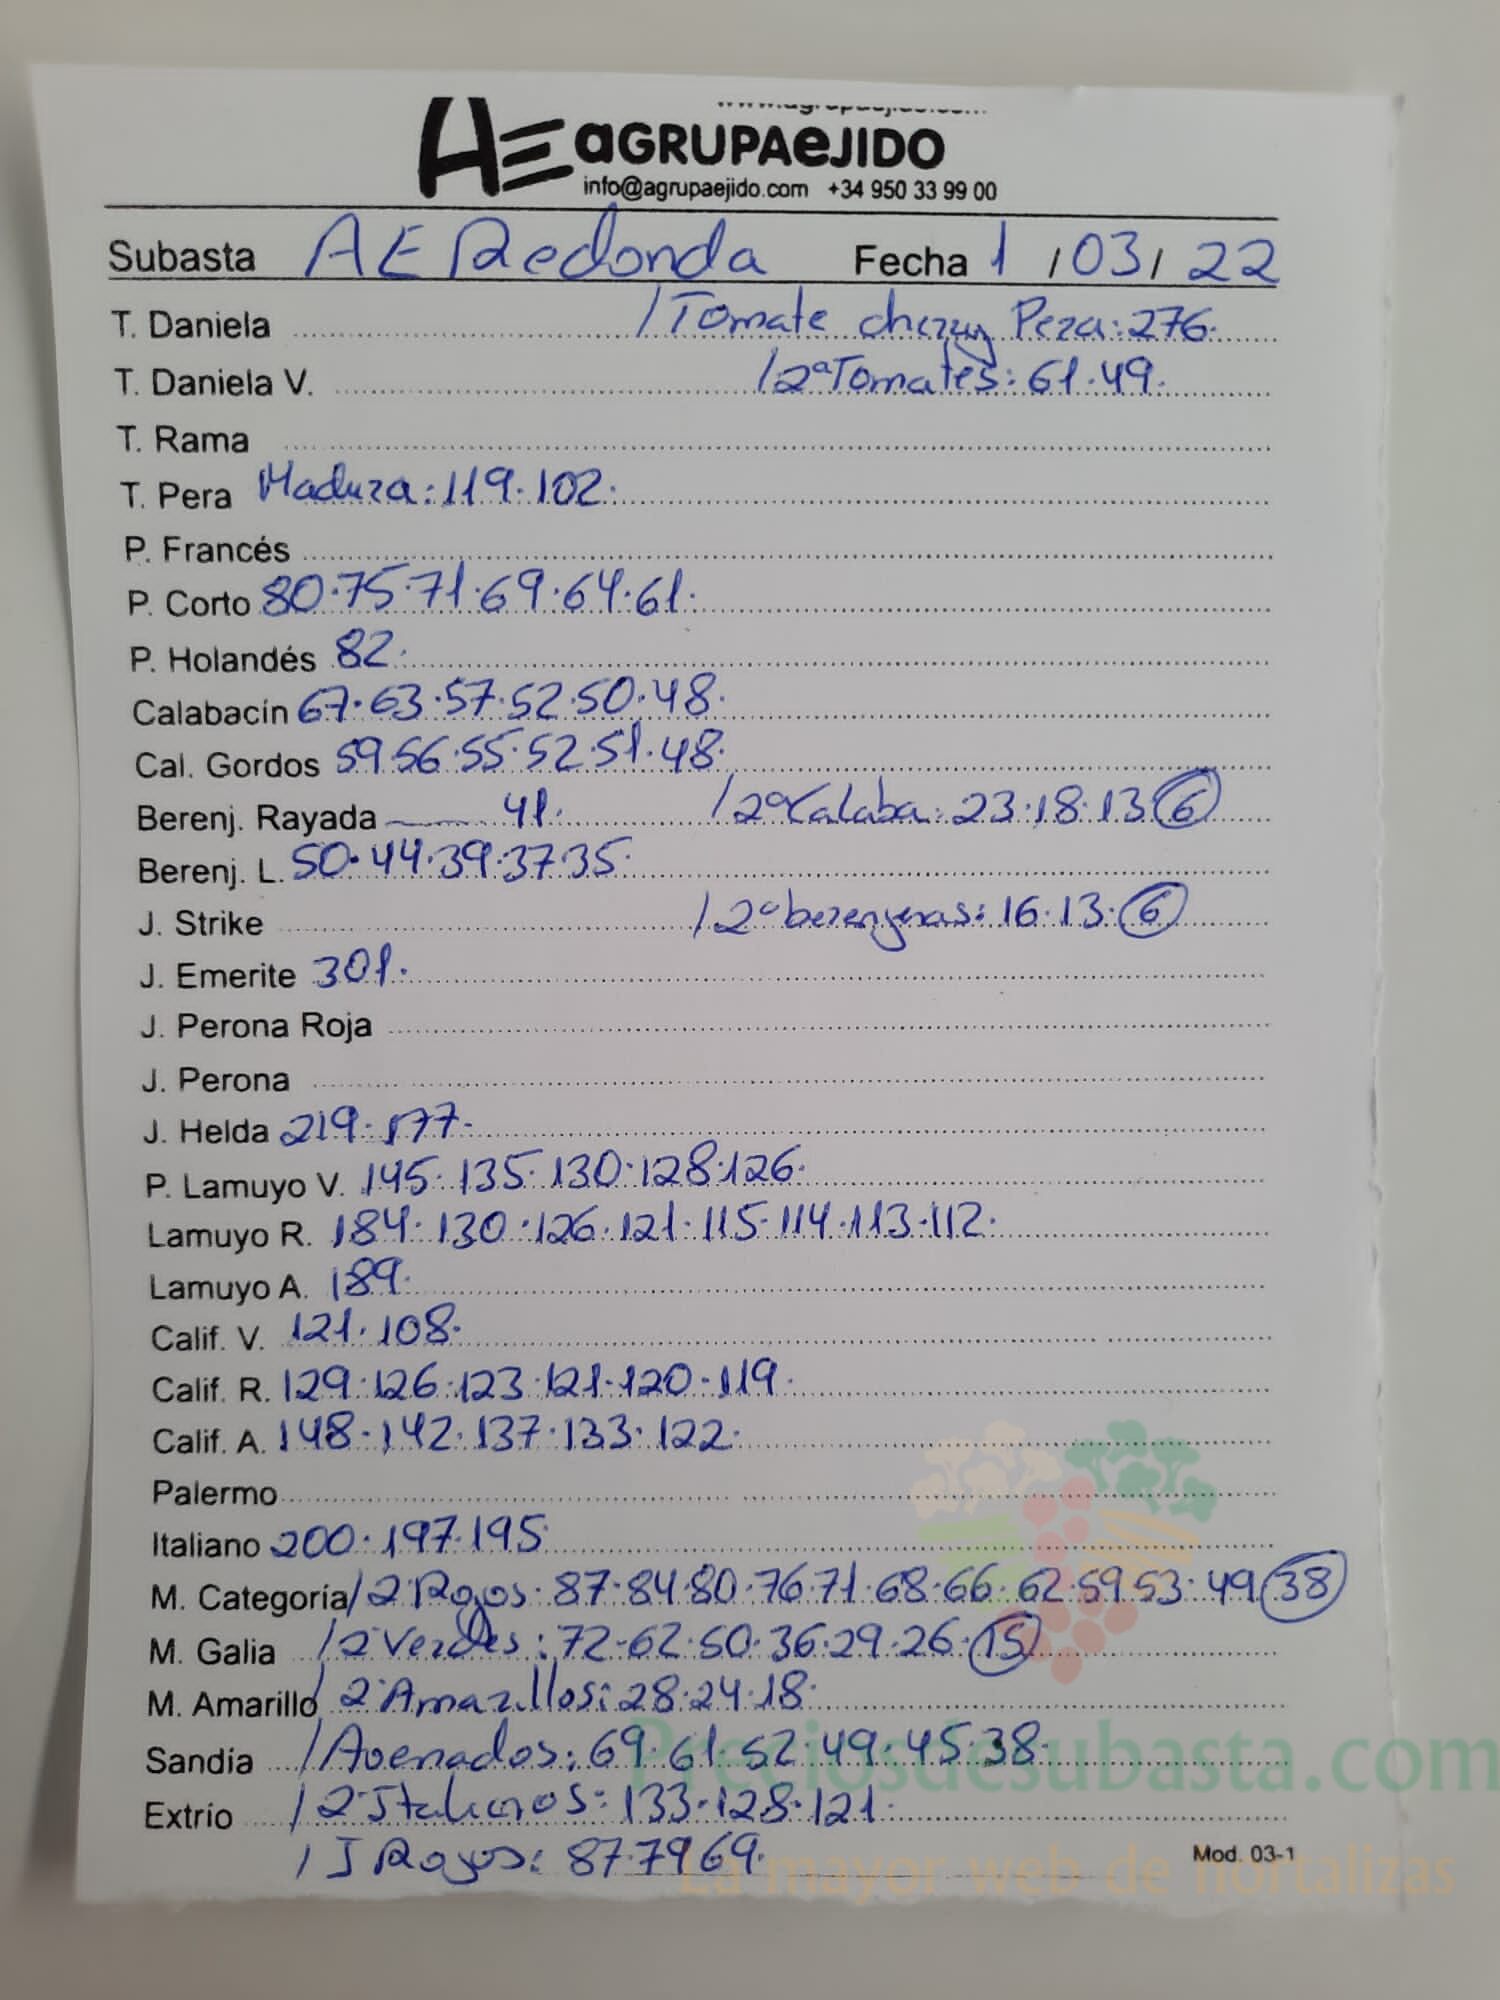 AE aGRUPAeJIDO
info@agrupaejido.com +34 950 33 99 00
Subasta AE Redonda Fecha 1/03/22
T. Daniela /Tomate cherry Pera: 276.
T. Daniela V. /2ªTomates: 61.49.
T. Rama
T. Pera Madura: 119.102.
P. Francés
P. Corto 80.75.71.69.64.61.
P. Holandés 82.
Calabacín 67.63.57.52.50.48.
Cal. Gordos 59.56.55.52.51.48.
Berenj. Rayada 41. /2ªCalaba: 23.18.13 6
Berenj. L. 50.44.39.37.35.
J. Strike /2ªberenjenas: 16.13. 6
J. Emerite 301.
J. Perona Roja
J. Perona
J. Helda 219. 177.
P. Lamuyo V. 145. 135. 130. 128.126.
Lamuyo R. 184. 130. 126. 121. 115. 114.113.112.
Lamuyo A. 189.
Calif. V. 121. 108.
Calif. R. 129.126.123.121.120.119.
Calif. A. 148.142.137.133.122.
Palermo
Italiano 200.197.195.
M. Categoría /2ªRojos: 87.84.80.76.71.68.66.62.59.53.49. 38
M. Galia /2ªVerdes: 72.62.50.36.29.26. 15
M. Amarillo /2ªAmarillos: 28.24.18.
Sandía /Asenados: 69.61.52.49.45.38.
Extrío /2ªItalianos: 133.128.121.
/J Rojos: 87.79.69.
Mod. 03-1
Preciosdesubasta.com
La mayor web de hortalizas